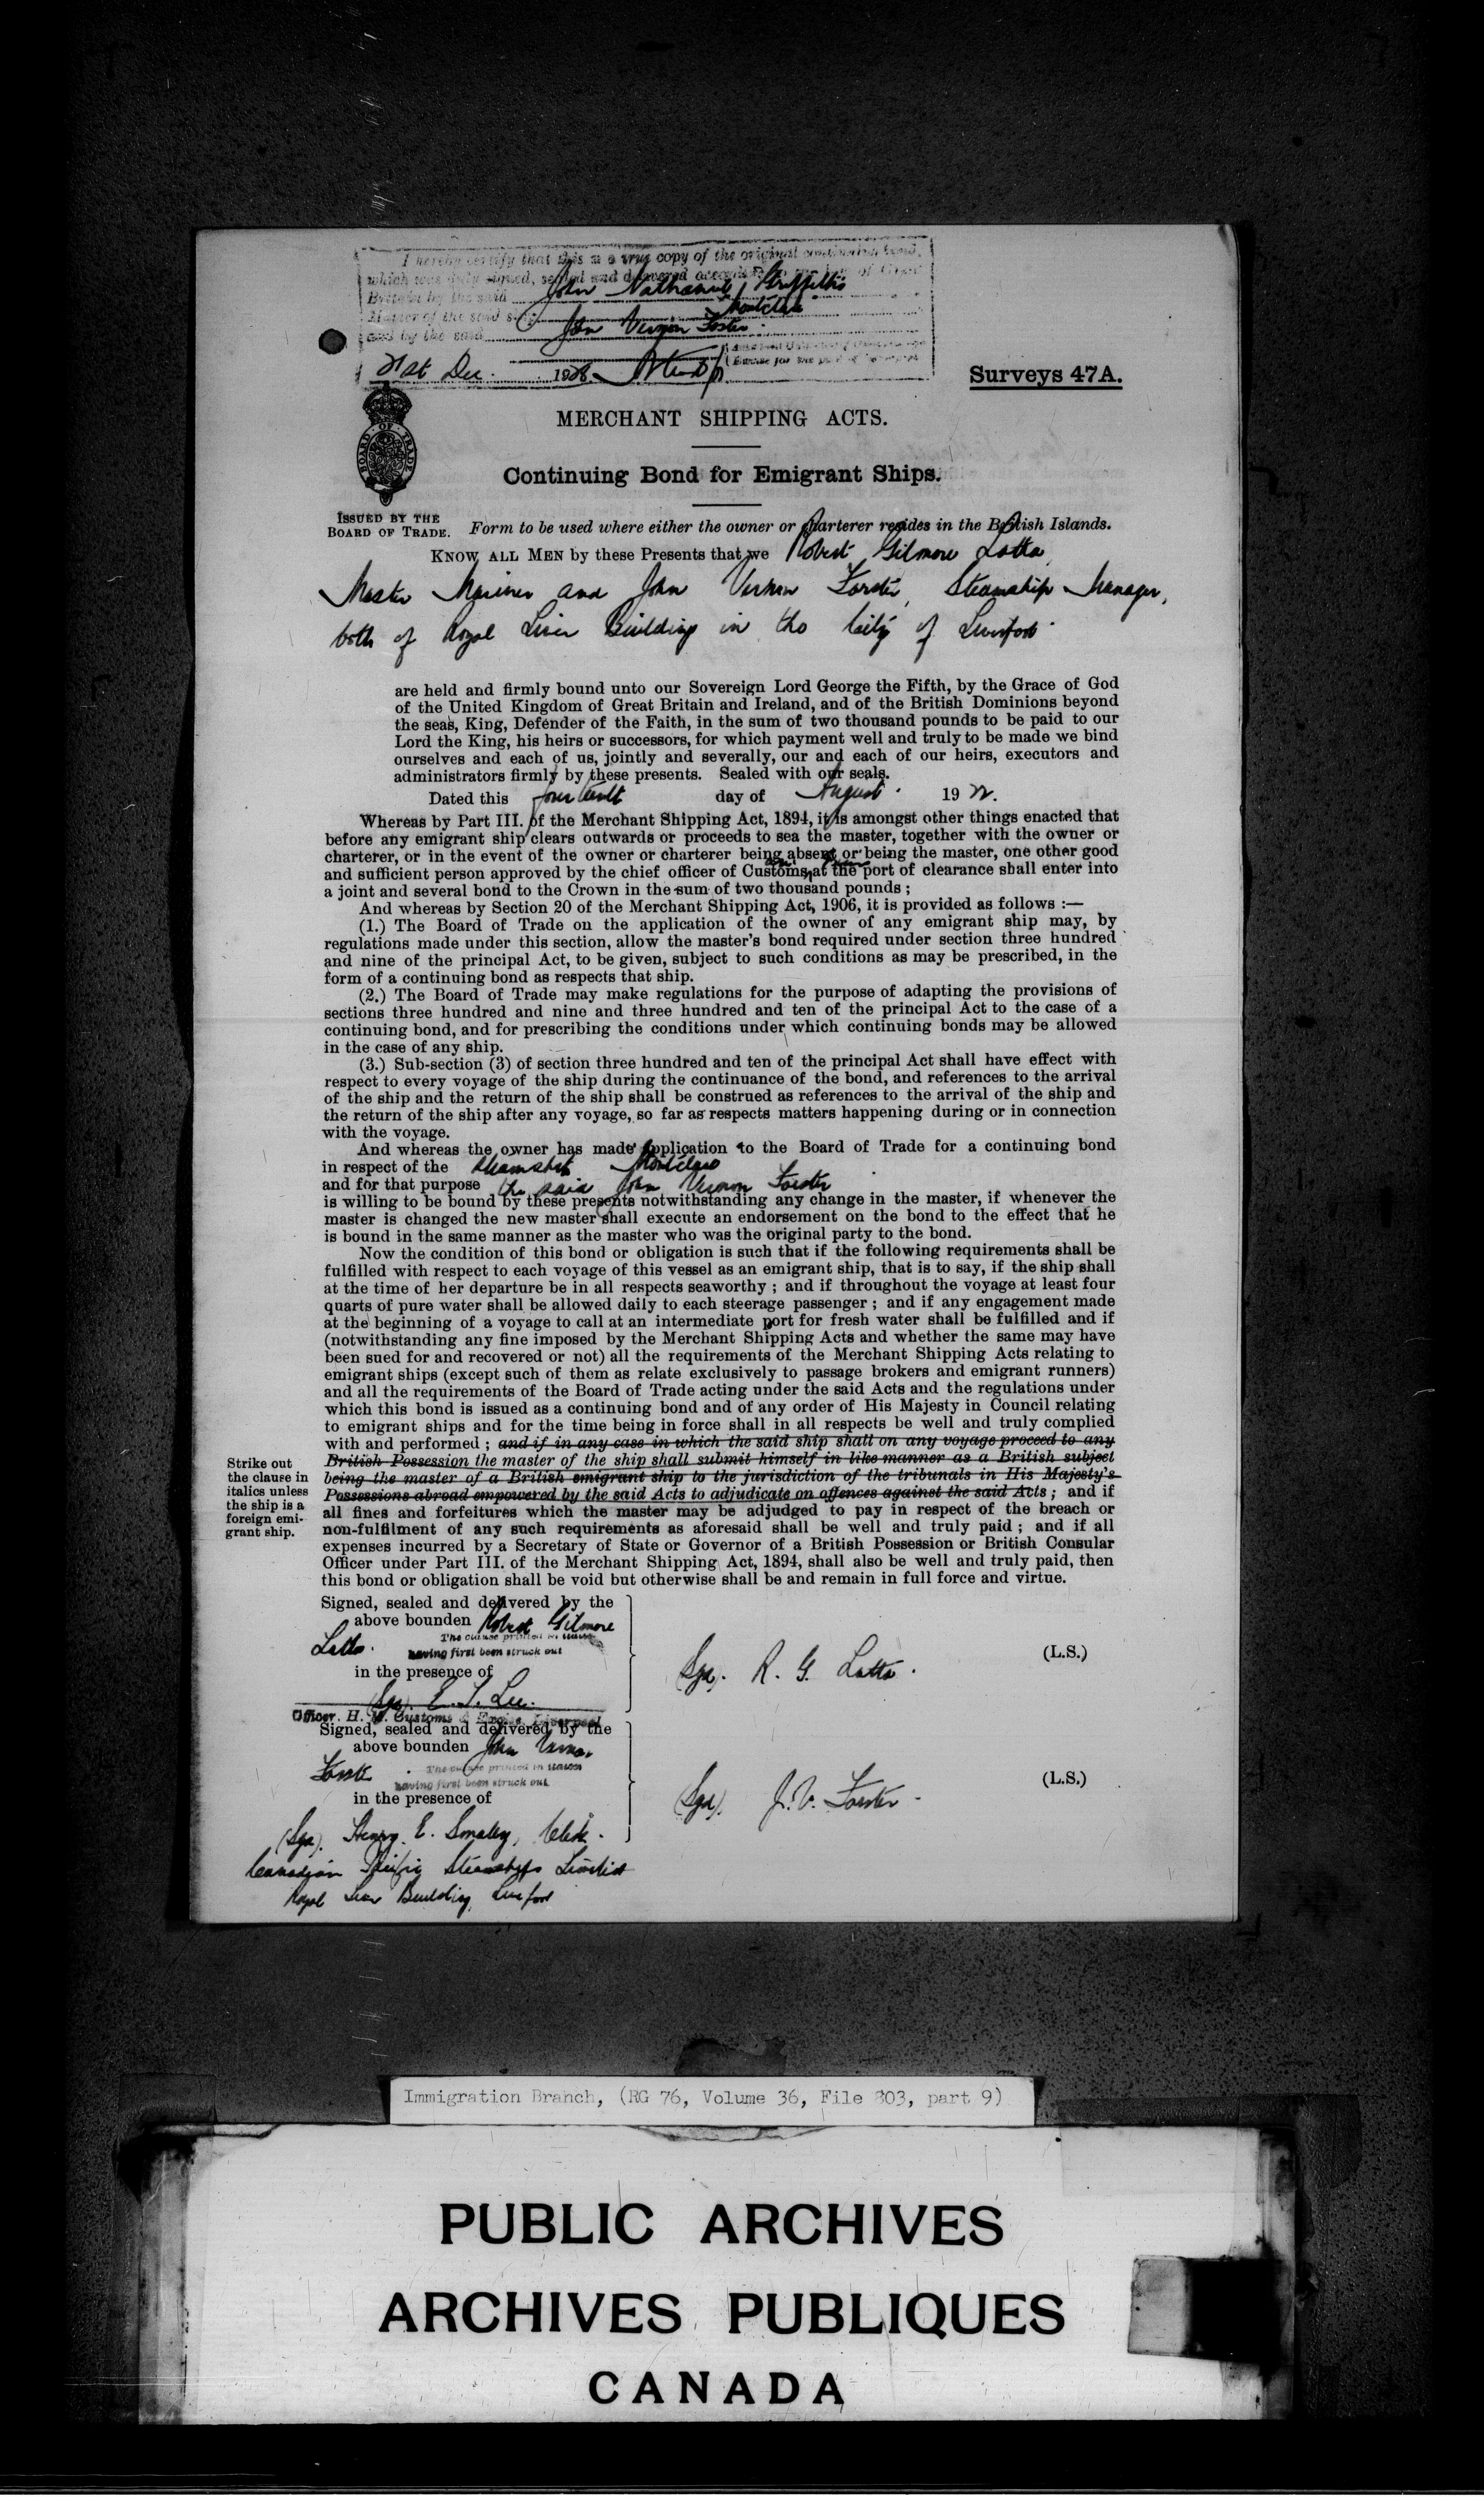 I hereby certify that this is a true copy of the original continuing bond,
which was duly signed, sealed and delivered according to the law of Great
Britain by the said John Nathaniel Griffiths
Master of the said s.s. Montclare
and by the said John Vernon Forster
21st Dec. 1928
Surveys 47A.
MERCHANT SHIPPING ACTS.
BOARD OF TRADE
Continuing Bond for Emigrant Ships.
ISSUED BY THE
BOARD OF TRADE.
Form to be used where either the owner or charterer resides in the British Islands.
KNOW ALL MEN by these Presents that we Robert Gilmore Latta
Master Mariner and John Vernon Forster, Steamship Manager,
both of Royal Liver Building in the City of Liverpool
are held and firmly bound unto our Sovereign Lord George the Fifth, by the Grace of God
of the United Kingdom of Great Britain and Ireland, and of the British Dominions beyond
the seas, King, Defender of the Faith, in the sum of two thousand pounds to be paid to our
Lord the King, his heirs or successors, for which payment well and truly to be made we bind
ourselves and each of us, jointly and severally, our and each of our heirs, executors and
administrators firmly by these presents. Sealed with our seals.
Dated this fourteenth day of August 1922.
Whereas by Part III. of the Merchant Shipping Act, 1894, it is amongst other things enacted that
before any emigrant ship clears outwards or proceeds to sea the master, together with the owner or
charterer, or in the event of the owner or charterer being absent or being the master, one other good
and sufficient person approved by the chief officer of Customs and Excise at the port of clearance shall enter into
a joint and several bond to the Crown in the sum of two thousand pounds ;
And whereas by Section 20 of the Merchant Shipping Act, 1906, it is provided as follows :—
(1.) The Board of Trade on the application of the owner of any emigrant ship may, by
regulations made under this section, allow the master's bond required under section three hundred
and nine of the principal Act, to be given, subject to such conditions as may be prescribed, in the
form of a continuing bond as respects that ship.
(2.) The Board of Trade may make regulations for the purpose of adapting the provisions of
sections three hundred and nine and three hundred and ten of the principal Act to the case of a
continuing bond, and for prescribing the conditions under which continuing bonds may be allowed
in the case of any ship.
(3.) Sub-section (3) of section three hundred and ten of the principal Act shall have effect with
respect to every voyage of the ship during the continuance of the bond, and references to the arrival
of the ship and the return of the ship shall be construed as references to the arrival of the ship and
the return of the ship after any voyage, so far as respects matters happening during or in connection
with the voyage.
And whereas the owner has made application to the Board of Trade for a continuing bond
in respect of the steamship Montclare
and for that purpose the said John Vernon Forster
is willing to be bound by these presents notwithstanding any change in the master, if whenever the
master is changed the new master shall execute an endorsement on the bond to the effect that he
is bound in the same manner as the master who was the original party to the bond.
Now the condition of this bond or obligation is such that if the following requirements shall be
fulfilled with respect to each voyage of this vessel as an emigrant ship, that is to say, if the ship shall
at the time of her departure be in all respects seaworthy ; and if throughout the voyage at least four
quarts of pure water shall be allowed daily to each steerage passenger ; and if any engagement made
at the beginning of a voyage to call at an intermediate port for fresh water shall be fulfilled and if
(notwithstanding any fine imposed by the Merchant Shipping Acts and whether the same may have
been sued for and recovered or not) all the requirements of the Merchant Shipping Acts relating to
emigrant ships (except such of them as relate exclusively to passage brokers and emigrant runners)
and all the requirements of the Board of Trade acting under the said Acts and the regulations under
which this bond is issued as a continuing bond and of any order of His Majesty in Council relating
to emigrant ships and for the time being in force shall in all respects be well and truly complied
with and performed ; and if in any case in which the said ship shall on any voyage proceed to any
British Possession the master of the ship shall submit himself in like manner as a British subject
being the master of a British emigrant ship to the jurisdiction of the tribunals in His Majesty's
Possessions abroad empowered by the said Acts to adjudicate on offences against the said Acts ; and if
all fines and forfeitures which the master may be adjudged to pay in respect of the breach or
non-fulfilment of any such requirements as aforesaid shall be well and truly paid ; and if all
expenses incurred by a Secretary of State or Governor of a British Possession or British Consular
Officer under Part III. of the Merchant Shipping Act, 1894, shall also be well and truly paid, then
this bond or obligation shall be void but otherwise shall be and remain in full force and virtue.
Strike out
the clause in
italics unless
the ship is a
foreign emi-
grant ship.
Signed, sealed and delivered by the
above bounden Robert Gilmore
Latta. The clause printed in italics
having first been struck out
in the presence of
(Sgd). E. J. Lee.
Officer. H. M. Customs & Excise, Liverpool
(Sgd). R. G. Latta.
(L.S.)
Signed, sealed and delivered by the
above bounden John Vernon
Forster. The clause printed in italics
having first been struck out
in the presence of
(Sgd). Henry E. Smaley, Clerk.
Canadian Pacific Steamships Limited
Royal Liver Building, Liverpool
(Sgd). J. V. Forster.
(L.S.)
Immigration Branch, (RG 76, Volume 36, File 803, part 9)
PUBLIC ARCHIVES
ARCHIVES PUBLIQUES
CANADA